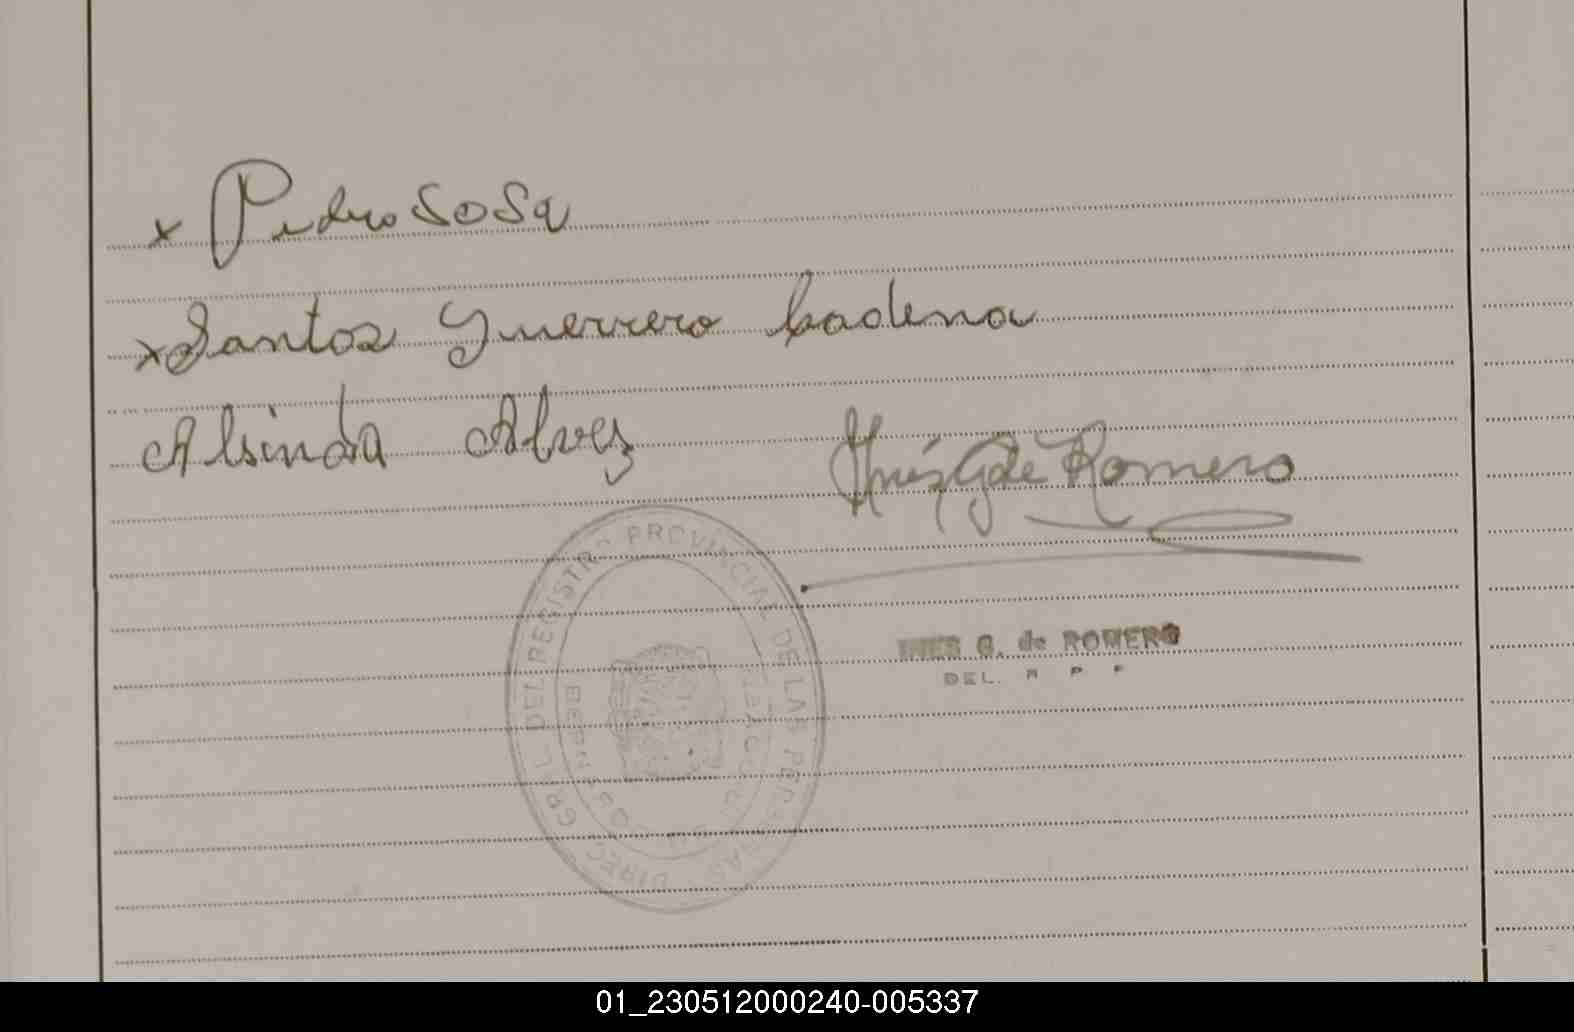 x Pedro Sosa
x Santos Guerrero Cadena
Alsinda Alvez
Inés G de Romero
INES G. de ROMERO
DEL. R P P
DIREC. GRAL. DEL REGISTRO PROVINCIAL DE LAS PERSONAS
01_230512000240-005337